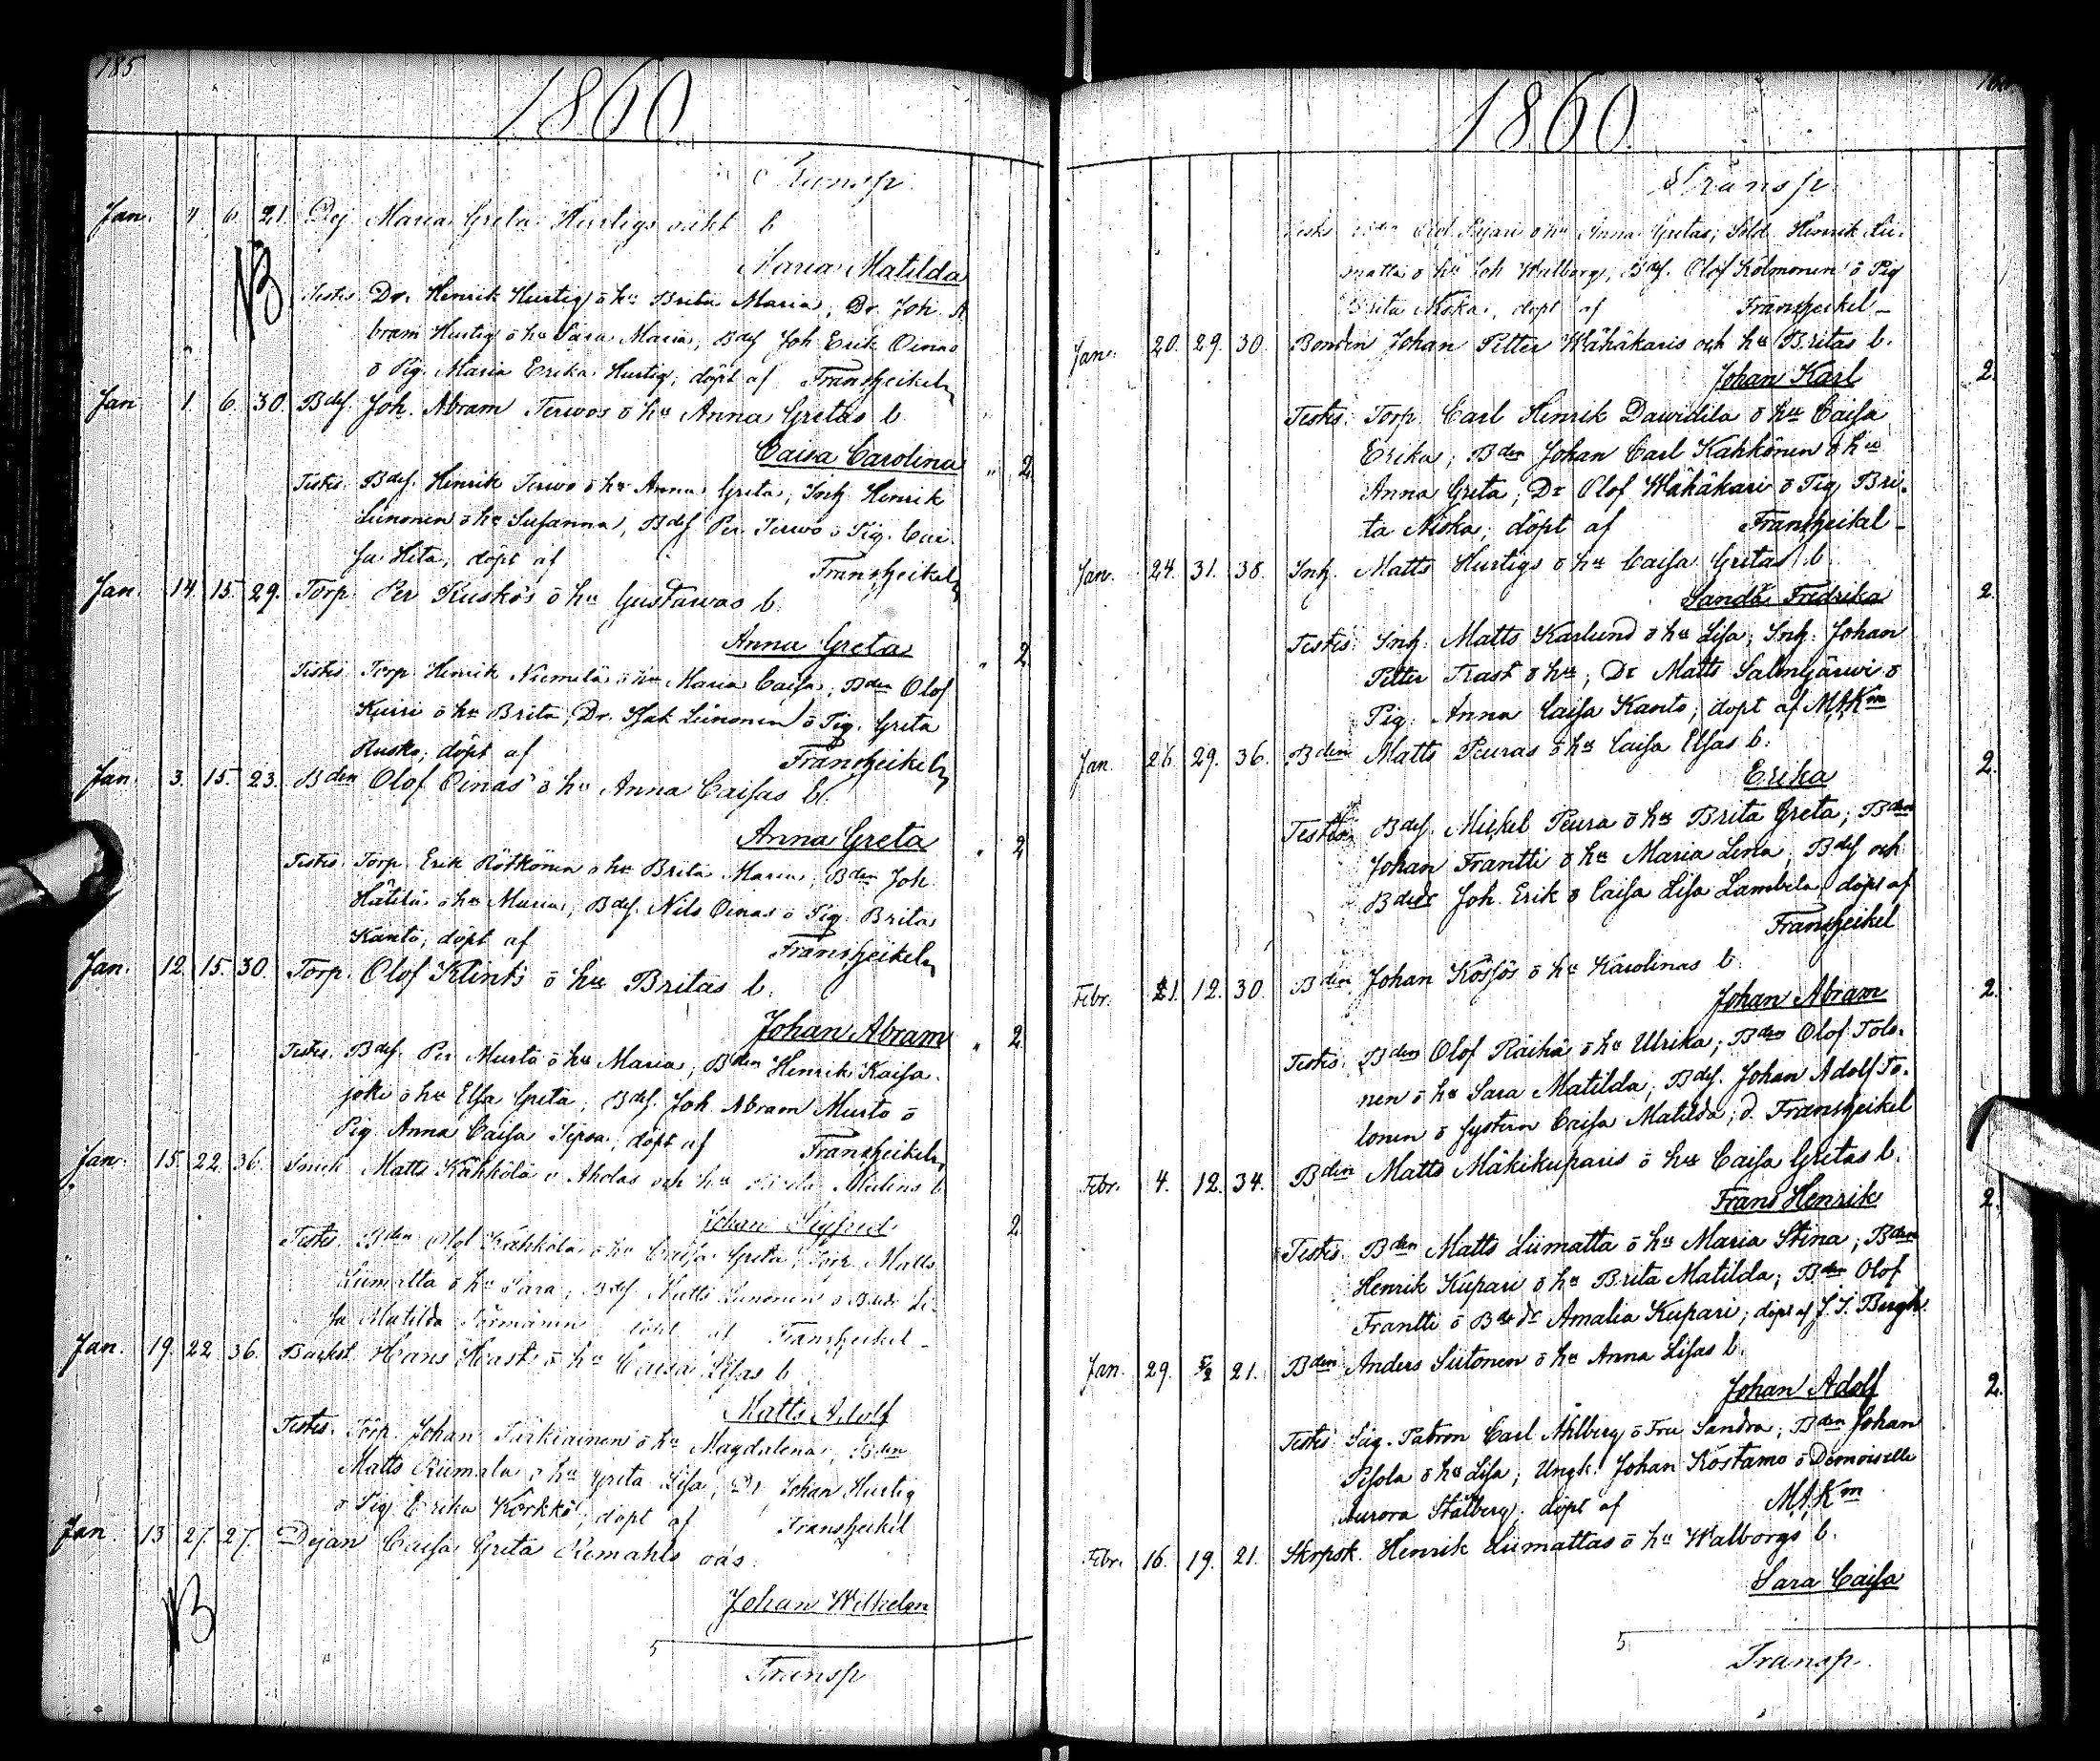 185
1860
Transp
Jan. 4 6. 21. Pig Maria Greta Hurtigs oäkt b
Maria Matilda
Testes Dr. Henrik Hurtig o hu Brita Maria; Dr. Joh. A
bram Hurtig o hu Sara Maria; Bdsf Joh Erik Oinas
o Pig. Maria Erika Hurtig; döpt af Franszeikel
NB
Jan 1. 6. 30. Bdsf. Joh. Abram Terwos o hu Anna Gretas b.
Caisa Carolina " 2
Testes. Bdsf. Henrik Terwo o hu Anna Greta; Inh. Henrik
Liinonen o hu Susanna; Bdsf Per Terwo o Pig. Cai
sa Heta; döpt af Franszeikel
Jan. 14. 15. 29. Torp. Per Ruskos o hu Gustawas b.
Anna Greta " 2
Testes Torp. Henrik Niemelä o hu Maria Caisa; Bden Olof
Kuiri o hu Brita; Dr. Isak Liinonen o Pig. Greta
Rusko; döpt af Franszeikel
Jan. 3. 15. 23. Bden Olof Oinas o hu Anna Caisas b.
Anna Greta " 2
Testes. Torp. Erik Rötkönen o hu Brita Maria; Bden Joh.
Hätilä o hu Maria; Bdsf. Nils Oinas o Pig. Brita
Kanto; döpt af Franszeikel
Jan. 12. 15. 30. Torp. Olof Klints o hu Britas b.
Johan Abram " 2
Testes. Bdsf. Per Murto o hu Maria; Bden Henrik Kaisa
joki o hu Elsa Greta; Bdsf. Joh. Abram Murto o
Pig. Anna Caisa; döpt af Franszeikel
Jan. 15. 22. 36. Matts Kähkölä o Aholas och hu b
Johan Sigfred 2
Testes. Bden Olof Kähkölä o hu Caisa Greta; Torp. Matts
Liimatta o hu Sara; Bdsf Matts Liinonen o Li
sa Matilda döpt af Franszeikel
Jan. 19. 22. 36. Backst. Hans Hast o hu Caisa Lisas b
Matts Adolf
Testes. Torp. Johan Türkiainen o hu Magdalena; Bden
Matts Riimala o hu Greta Lisa; Dr. Johan Hurtig
o Pig. Erika Körkkö; döpt af Franszeikel
Jan 13 27. 27. Dejan Caisa Greta Remahls oäs.
Johan Wilhelm
NB
5
Transp
1860.
Transp
Testes Olof o hu Anna Gretas; Sold. Henrik Lii
matta o hu Joh Walborg; Bdsf. Olof Kolmonen o Pig
Brita Niska, döpt af Franszeikel
Jan. 20. 29. 30. Bonden Johan Petter Wähäkaris och hu Britas b.
Johan Karl 2.
Testes. Torp. Carl Henrik Dawidila o hu Caisa
Erika; Bden Johan Carl Kähkönen o hu
Anna Greta; Dr Olof Wähäkari o Pig Bri.
ta Niska; döpt af Franszeikel
Jan. 24. 31. 38. Inh. Matts Hurtigs o hu Caisa Gretas b.
Sanda Fredrika 2.
Testes: Inh. Matts Karlund o hu Lisa; Inh. Johan
Petter Trast o hu; Dr Matts Salmijärwi o
Pig. Anna Caisa Kanto; döpt af MAKm
Jan. 26. 29. 36. Bden Matts Peuras o hu Caisa Elsas b.
Erika 2.
Testes. Bdsf. Mickel Peura o hu Brita Greta; Bden
Johan Frantti o hu Maria Lena; Bdsf och
Bddr Joh. Erik o Caisa Lisa Lambela döpt af
Franszeikel
Febr. 1. 12. 30. Bden Johan Kössös o hu Karolinas b.
Johan Abram 2.
Testes. Bden Olof Räihä o hu Ulrika; Bden Olof Tolo-
nen o hu Sara Matilda; Bdsf. Johan Adolf To-
lonen o systern Caisa Matilda; d. Franszeikel
Febr. 4. 12. 34. Bden Matts Mäkikuparis o hu Caisa Gretas b.
Frans Henrik 2.
Testes. Bden Matts Liimatta o hu Maria Stina; Bden
Henrik Kupari o hu Brita Matilda; Bden Olof
Frantti o Bddr Amalia Kupari; döpt af J. I. Bergh.
Jan. 29. 5/2 21. Bden Anders Siitonen o hu Anna Lisas b.
Johan Adolf 2.
Testes Säg. Patron Carl Ahlberg o Fru Sandra; Bden Johan
Pesola o hu Lisa; Ungk. Johan Köstamo o Demoiselle
Aurora Stålberg; döpt af MAKm
Febr. 16. 19. 21. Skrpsk. Henrik Liimattas o hu Walborgs b.
Sara Caisa
5
Transp.